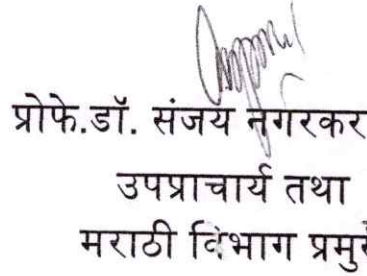 प्रोफे.डॉ. संजय नगरकर
उपप्राचार्य तथा
मराठी विभाग